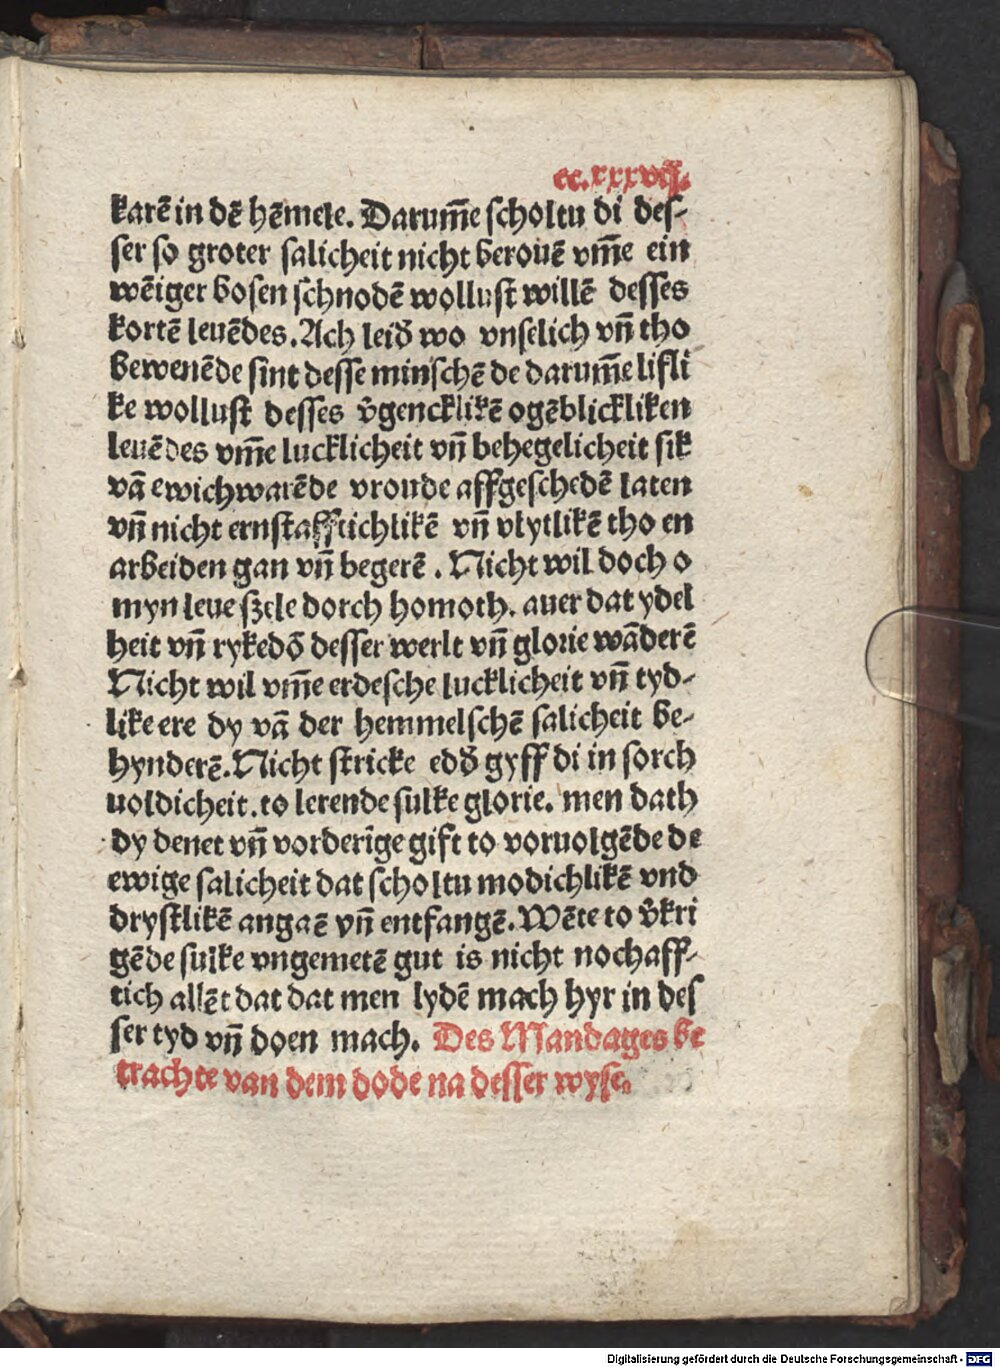 cc.xxxvij.
karē in dē hēmele. Darum̄e scholtu di des-
ser so groter salicheit nicht berouē vm̄e ein
wēiger bosen schnodē wollust willē desses
kortē leuēdes. Ach leid̄ wo vnselich vn̄ tho
bewenēde sint desse minschē de darum̄e lifli
ke wollust desses v̄gencklikē ogēblickliken
leuēdes vm̄e lucklicheit vn̄ behegelicheit sik
vā ewichwarēde vroude affgeschedē laten
vn̄ nicht ernstafftichlikē vn̄ vlytlikē tho en
arbeiden gan vn̄ begerē. Nicht wil doch o
myn leue szele dorch homoth. auer dat ydel
heit vn̄ rykedō desser werlt vn̄ glorie wāderē
Nicht wil vm̄e erdesche lucklicheit vn̄ tyd-
like ere dy vā der hemmelschē salicheit be-
hynderē. Nicht stricke edd̄ gyff di in sorch
uoldicheit. to lerende sulke glorie. men dath
dy denet vn̄ vorderīge gift to voruolgēde de
ewige salicheit dat scholtu modichlikē vnd
drystlikē angaē vn̄ entfangē. Wēte to v̄kri
gēde sulke vngemetē gut is nicht nochaff-
tich allēt dat dat men lydē mach hyr in des
ser tyd vn̄ doen mach. Des Mandages be
trachte van dem dode na desser wyse.
Digitalisierung gefördert durch die Deutsche Forschungsgemeinschaft - DFG